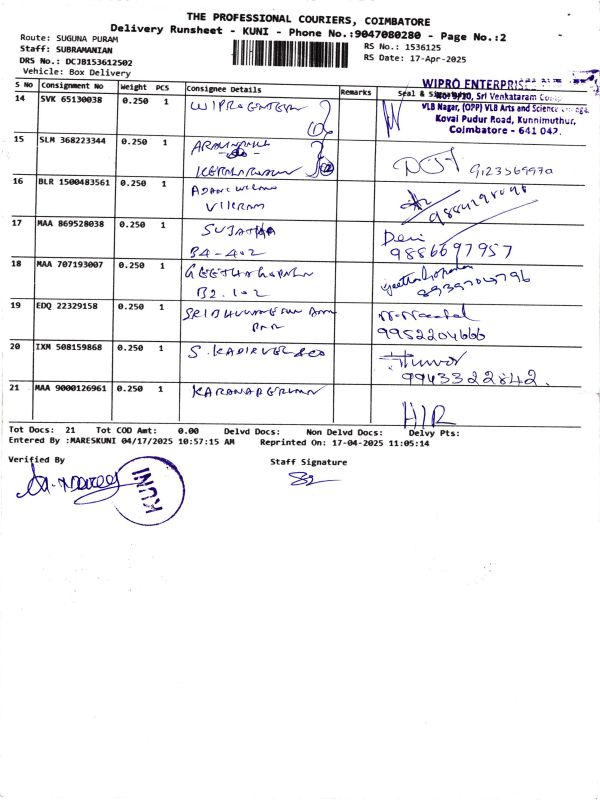 THE PROFESSIONAL COURIERS, COIMBATORE
Delivery Runsheet - KUNI - Phone No.:9047080280 - Page No.:2
Route: SUGUNA PURAM
RS No.: 1536125
Staff: SUBRAMANIAN
DRS No.: DCJB153612502
RS Date: 17-Apr-2025
Vehicle: Box Delivery
S No Consignment No Weight PCS Consignee Details Remarks Seal &
WIPRO ENTERPRISE
14 SVK 65130038 0.250 1 WIPRO ENTER
No: 9/10, Sri Venkataram
VLB Nagar, (OPP) VLB Arts and Science
Kovai Pudur Road, Kunnimuthur,
Coimbatore - 641 042.
15 SLM 368223344 0.250 1
16 BLR 1500483561 0.250 1
VIKRAM
17 MAA 869528038 0.250 1 SUJATHA
B4-402
Devi
9886697957
18 MAA 707193007 0.250 1 GEETHAGOPALN
B2.102
19 EDQ 22329158 0.250 1
9952204666
20 IXM 508159868 0.250 1 S.KADIRVEL
9943322842.
21 MAA 9000126961 0.250 1
H/R
Tot Docs: 21 Tot COD Amt: 0.00 Delvd Docs: Non Delvd Docs: Delvy Pts:
Entered By :MARESKUNI 04/17/2025 10:57:15 AM Reprinted On: 17-04-2025 11:05:14
Verified By Staff Signature
KUNI